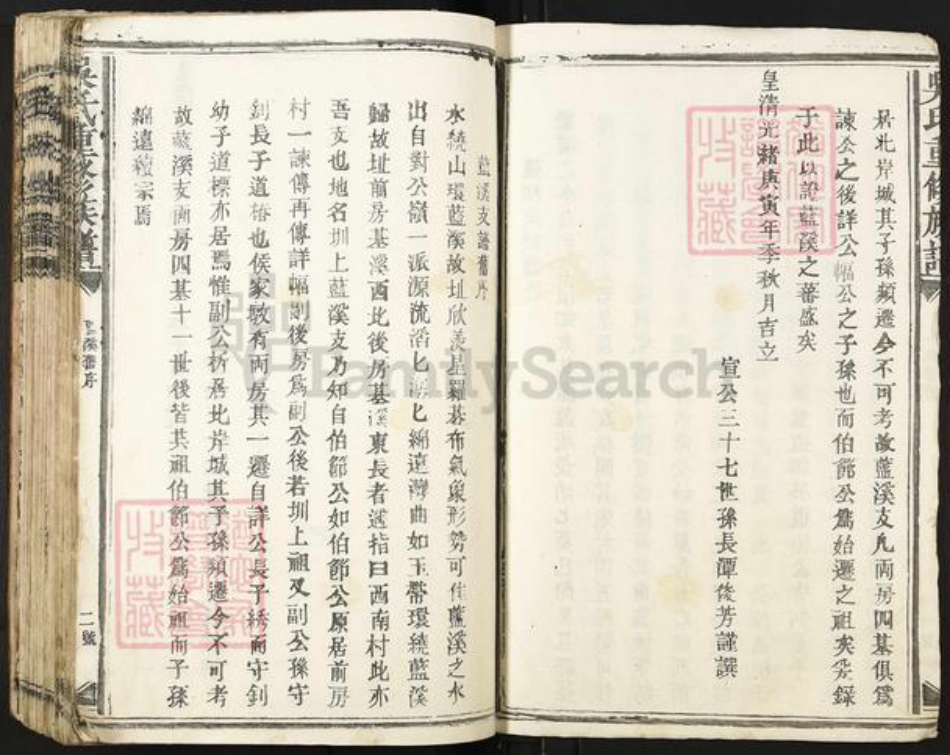 居北岸城其子孫頻遷今不可考故藍溪支凡兩房四基俱爲
諫公之後詳公幅公之子孫也而伯節公爲始遷之祖矣妥錄
于此以誌藍溪之蕃盛矣
皇清光緒庚寅年季秋月吉立
宣公三十七世孫長潭俊芳謹譔
藍溪支譜舊序
水繞山環藍溪故址欣羨星羅碁布氣象形勢可佳藍溪之水
出自對公嶺一派源流滔匕湯匕綿遠灣曲如玉帶環繞藍溪
歸故址前房基溪西北後房基溪東長者遙指曰西南村此亦
吾支也地名圳上藍溪支乃知自伯節公如伯節公原居前房
村一諫傳再傳詳幅則後房爲副公後若圳上祖又副公孫守
釗長子道椿也侯家敂有兩房其一遷自詳公長子綉而守釗
幼子道標亦居焉惟副公析居北岸城其子孫頻遷今不可考
故藍溪支兩房四基十一世後皆其祖伯節公爲始祖而子孫
綿遠積宗焉
吳氏重修族譜
藍溪舊序
二號
吳氏重修族譜
FamilySearch